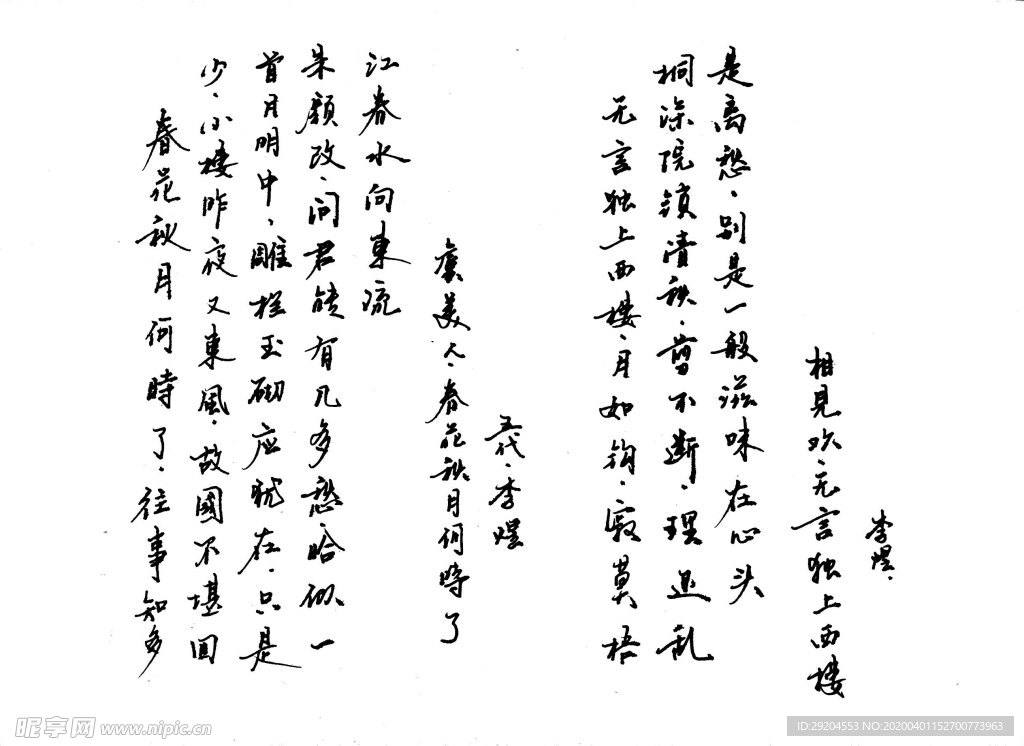 春花秋月何時了·往事知多
少·小楼昨夜又東風·故國不堪回
首月明中·雕栏玉砌应犹在·只是
朱颜改·问君能有几多愁·恰似一
江春水向東流
虞美人·春花秋月何時了
五代·李煜
无言独上西楼·月如钩·寂寞梧
桐深院锁清秋·剪不断·理还乱
是离愁·别是一般滋味在心头
相見欢·无言独上西楼
李煜·
昵享网 www.nipic.cn
ID:29204553 NO:20200401152700773963